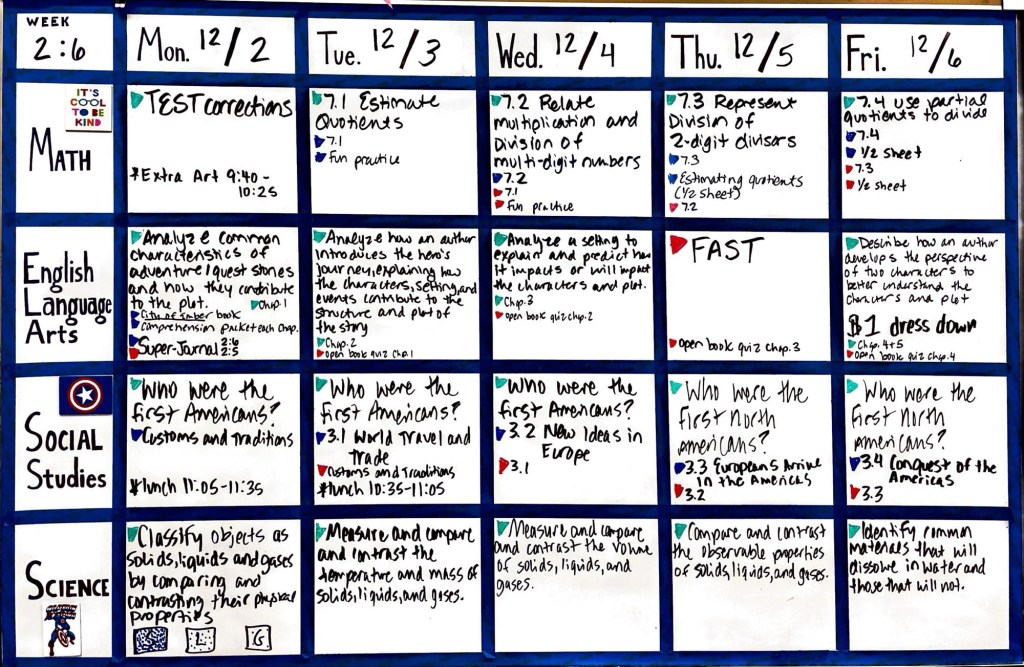 WEEK
2:6
Mon. 12/2
Tue. 12/3
Wed. 12/4
Thu. 12/5
Fri. 12/6
IT'S
COOL
TO BE
KIND
MATH
TEST corrections
*Extra Art 9:40-
10:25
7.1 Estimate
Quotients
7.1
Fun practice
7.2 Relate
multiplication and
Division of
multi-digit numbers
7.2
7.1
Fun practice
7.3 Represent
Division of
2-digit divisors
7.3
Estimating quotients
(1/2 sheet)
7.2
7.4 use partial
quotients to divide
7.4
1/2 sheet
7.3
1/2 sheet
English
Language
Arts
Analyze common
characteristics of
adventure/quest stories
and how they contribute
to the plot.
Chp. 1
City of Ember book
Comprehension packet each chap.
Super-Journal 2:6
2:5
Analyze how an author
introduces the hero's
journey, explaining how
the characters, setting, and
events contribute to the
structure and plot of
the story
Chp. 2
open book quiz chp. 1
Analyze a setting to
explain and predict how
it impacts or will impact
the characters and plot.
Chp. 3
open book quiz chp. 2
FAST
open book quiz chp. 3
Describe how an author
develops the perspective
of two characters to
better understand the
characters and plot
$1 dress down
Chp. 4+5
open book quiz chp. 4
SOCIAL
Studies
Who were the
first Americans?
Customs and Traditions
*lunch 11:05-11:35
Who were the
first Americans?
3.1 World Travel and
Trade
Customs and Traditions
*lunch 10:35-11:05
Who were the
first Americans?
3.2 New Ideas in
Europe
3.1
Who were the
first North
Americans?
3.3 Europeans Arrive
in the Americas
3.2
Who were the
first North
Americans?
3.4 Conquest of the
Americas
3.3
SCIENCE
Classify objects as
solids, liquids and gases
by comparing and
contrasting their physical
properties
S L G
Measure and compare
and contrast the
temperature and mass of
solids, liquids, and gases.
Measure and compare
and contrast the volume
of solids, liquids, and
gases.
Compare and contrast
the observable properties
of solids, liquids, and gases.
Identify common
materials that will
dissolve in water and
those that will not.